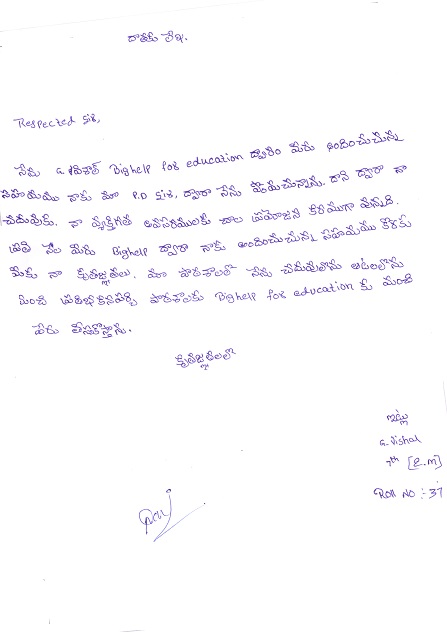 దాతకు లేఖ.
Respected Sir,
నేను G. విశాల్ Bighelp for education ద్వారా మీరు అందించుచున్న
సహాయము నాకు మా P.D Sir, ద్వారా నేను పొందుచున్నాను. దాని ద్వారా నా
చదువుకు. నా వ్యక్తిగత అవసరములకు చాల ప్రయోజన కరముగా వున్నది.
ప్రతి నెల మీరు Bighelp ద్వారా నాకు అందించుచున్న సహాయము కొరకు
మీకు నా కృతజ్ఞతలు. మా పాఠశాలలో నేను చదువులోను ఆటలలోను
మంచి ప్రతిభకనపర్చి పాఠశాలకు Bighelp for education కు మంచి
పేరు తీసుకొస్తాను.
కృతజ్ఞతలతో
ఇట్లు
G. Vishal
7th [E.M]
Roll NO :- 37